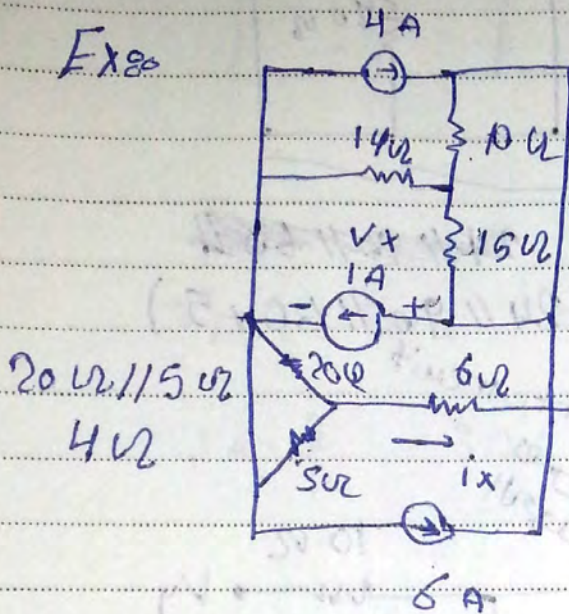 Ex:
4 A
14Ω
10 Ω
Vx
15Ω
1A
- +
20Ω
6Ω
20 Ω // 5 Ω
4Ω
5Ω
ix
6 A